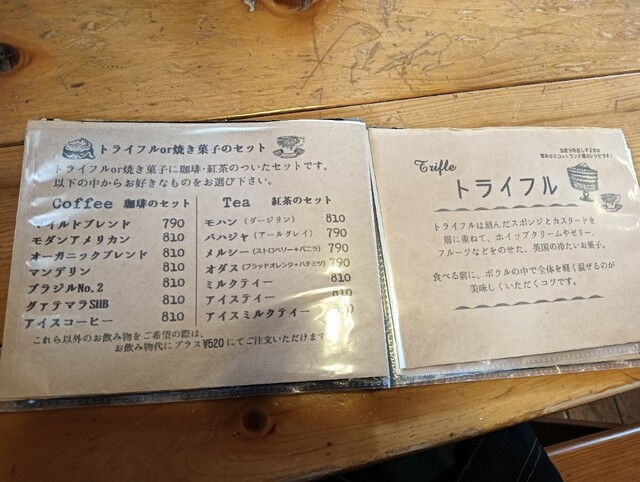 トライフルor焼き菓子のセット
トライフルor焼き菓子に珈琲・紅茶のついたセットです。
以下の中からお好きなものをお選び下さい。
Coffee 珈琲のセット
マイルドブレンド 790
モダンアメリカン 810
オーガニックブレンド 810
マンデリン 810
ブラジルNo.2 810
グァテマラSHB 810
アイスコーヒー 810
Tea 紅茶のセット
モハン(ダージリン) 810
バハジャ(アールグレイ) 790
メルシー(ストロベリー+バニラ) 790
オダス(ブラッドオレンジ+ハチミツ) 790
ミルクティー 810
アイスティー
アイスミルクティー
これら以外のお飲み物をご希望の際は、
お飲み物代にプラス¥520にてご注文いただけます
Trifle
トライフル
トライフルは刻んだスポンジとカスタードを
層に重ねて、ホイップクリームやゼリー、
フルーツなどをのせた、英国の冷たいお菓子。
食べる前に、ボウルの中で全体を軽く混ぜるのが
美味しくいただくコツです。